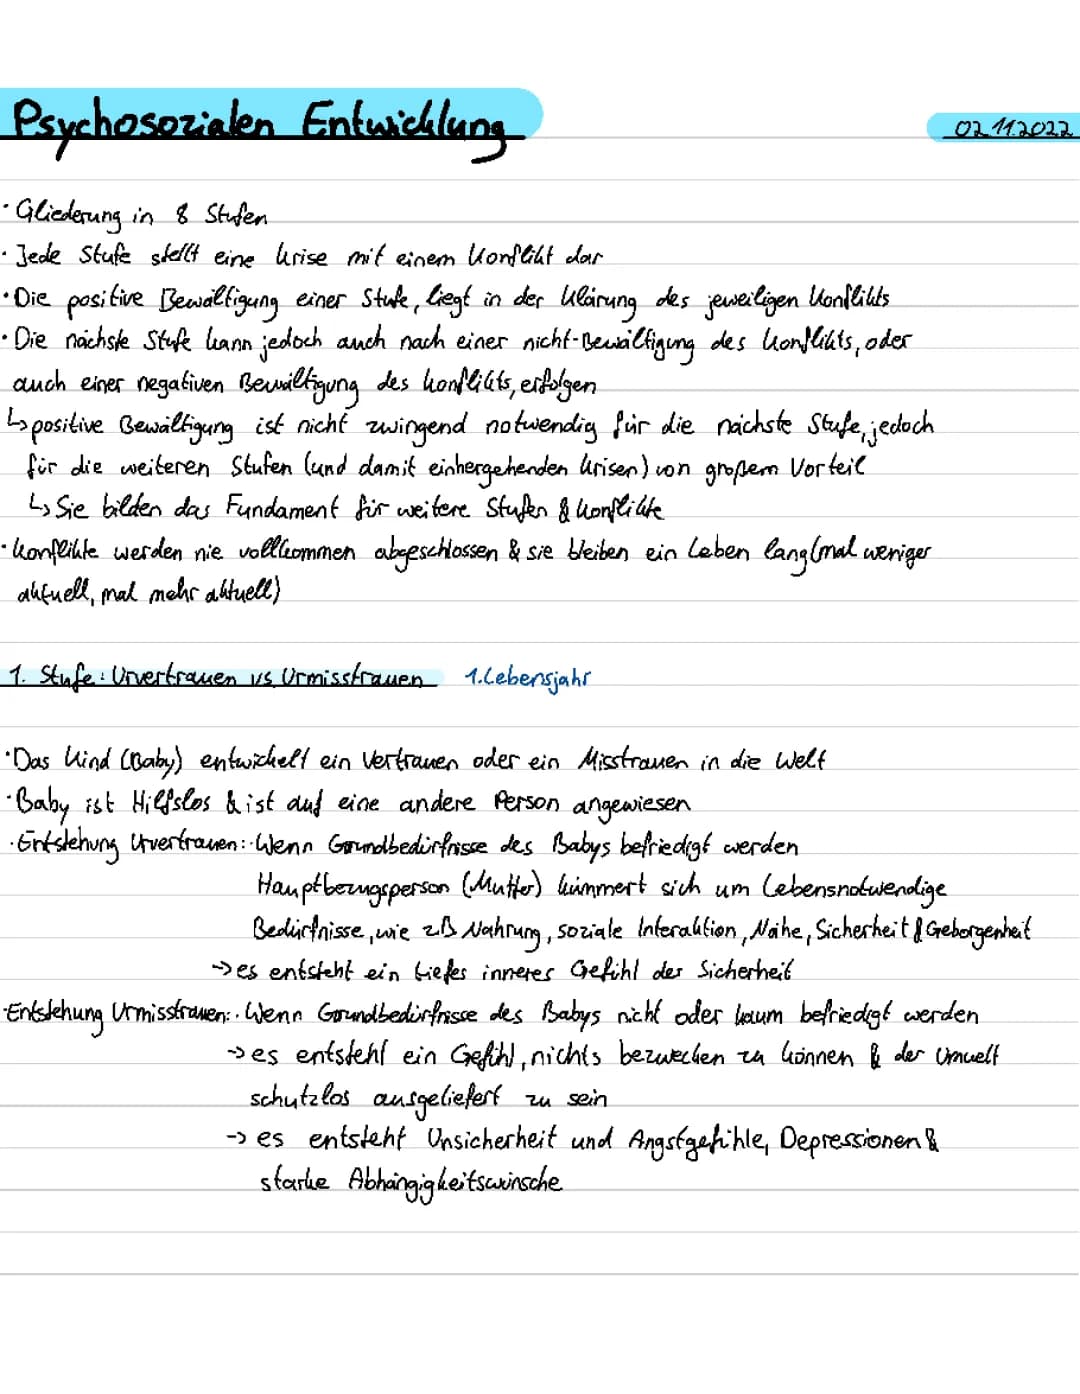 Psychosozialen Entwicklung
02.11.2022
· Gliederung in 8 Stufen
· Jede Stufe stellt eine Krise mit einem Konflikt dar
· Die positive Bewältigung einer Stufe, liegt in der Klärung des jeweiligen Konflikts
· Die nächste Stufe kann jedoch auch nach einer nicht-Bewältigung des Konflikts, oder
auch einer negativen Bewältigung des Konflikts, erfolgen
↳ positive Bewältigung ist nicht zwingend notwendig für die nächste Stufe, jedoch
für die weiteren Stufen (und damit einhergehenden Krisen) von großem Vorteil
↳ Sie bilden das Fundament für weitere Stufen & Konflikte
· Konflikte werden nie vollkommen abgeschlossen & sie bleiben ein Leben lang (mal weniger
aktuell, mal mehr aktuell)
1. Stufe: Urvertrauen vs Urmisstrauen 1. Lebensjahr
· Das Kind (Baby) entwickelt ein Vertrauen oder ein Misstrauen in die Welt
· Baby ist Hilfslos & ist auf eine andere Person angewiesen
· Entstehung Urvertrauen: · Wenn Grundbedürfnisse des Babys befriedigt werden
Hauptbezugsperson (Mutter) kümmert sich um Lebensnotwendige
Bedürfnisse, wie zB Nahrung, soziale Interaktion, Nähe, Sicherheit & Geborgenheit
→ es entsteht ein tiefes inneres Gefühl der Sicherheit
· Entstehung Urmisstrauen: · Wenn Grundbedürfnisse des Babys nicht oder kaum befriedigt werden
→ es entsteht ein Gefühl, nichts bezwecken zu können & der Umwelt
schutzlos ausgeliefert zu sein
→ es entsteht Unsicherheit und Angstgefühle, Depressionen &
starke Abhängigkeitswünsche